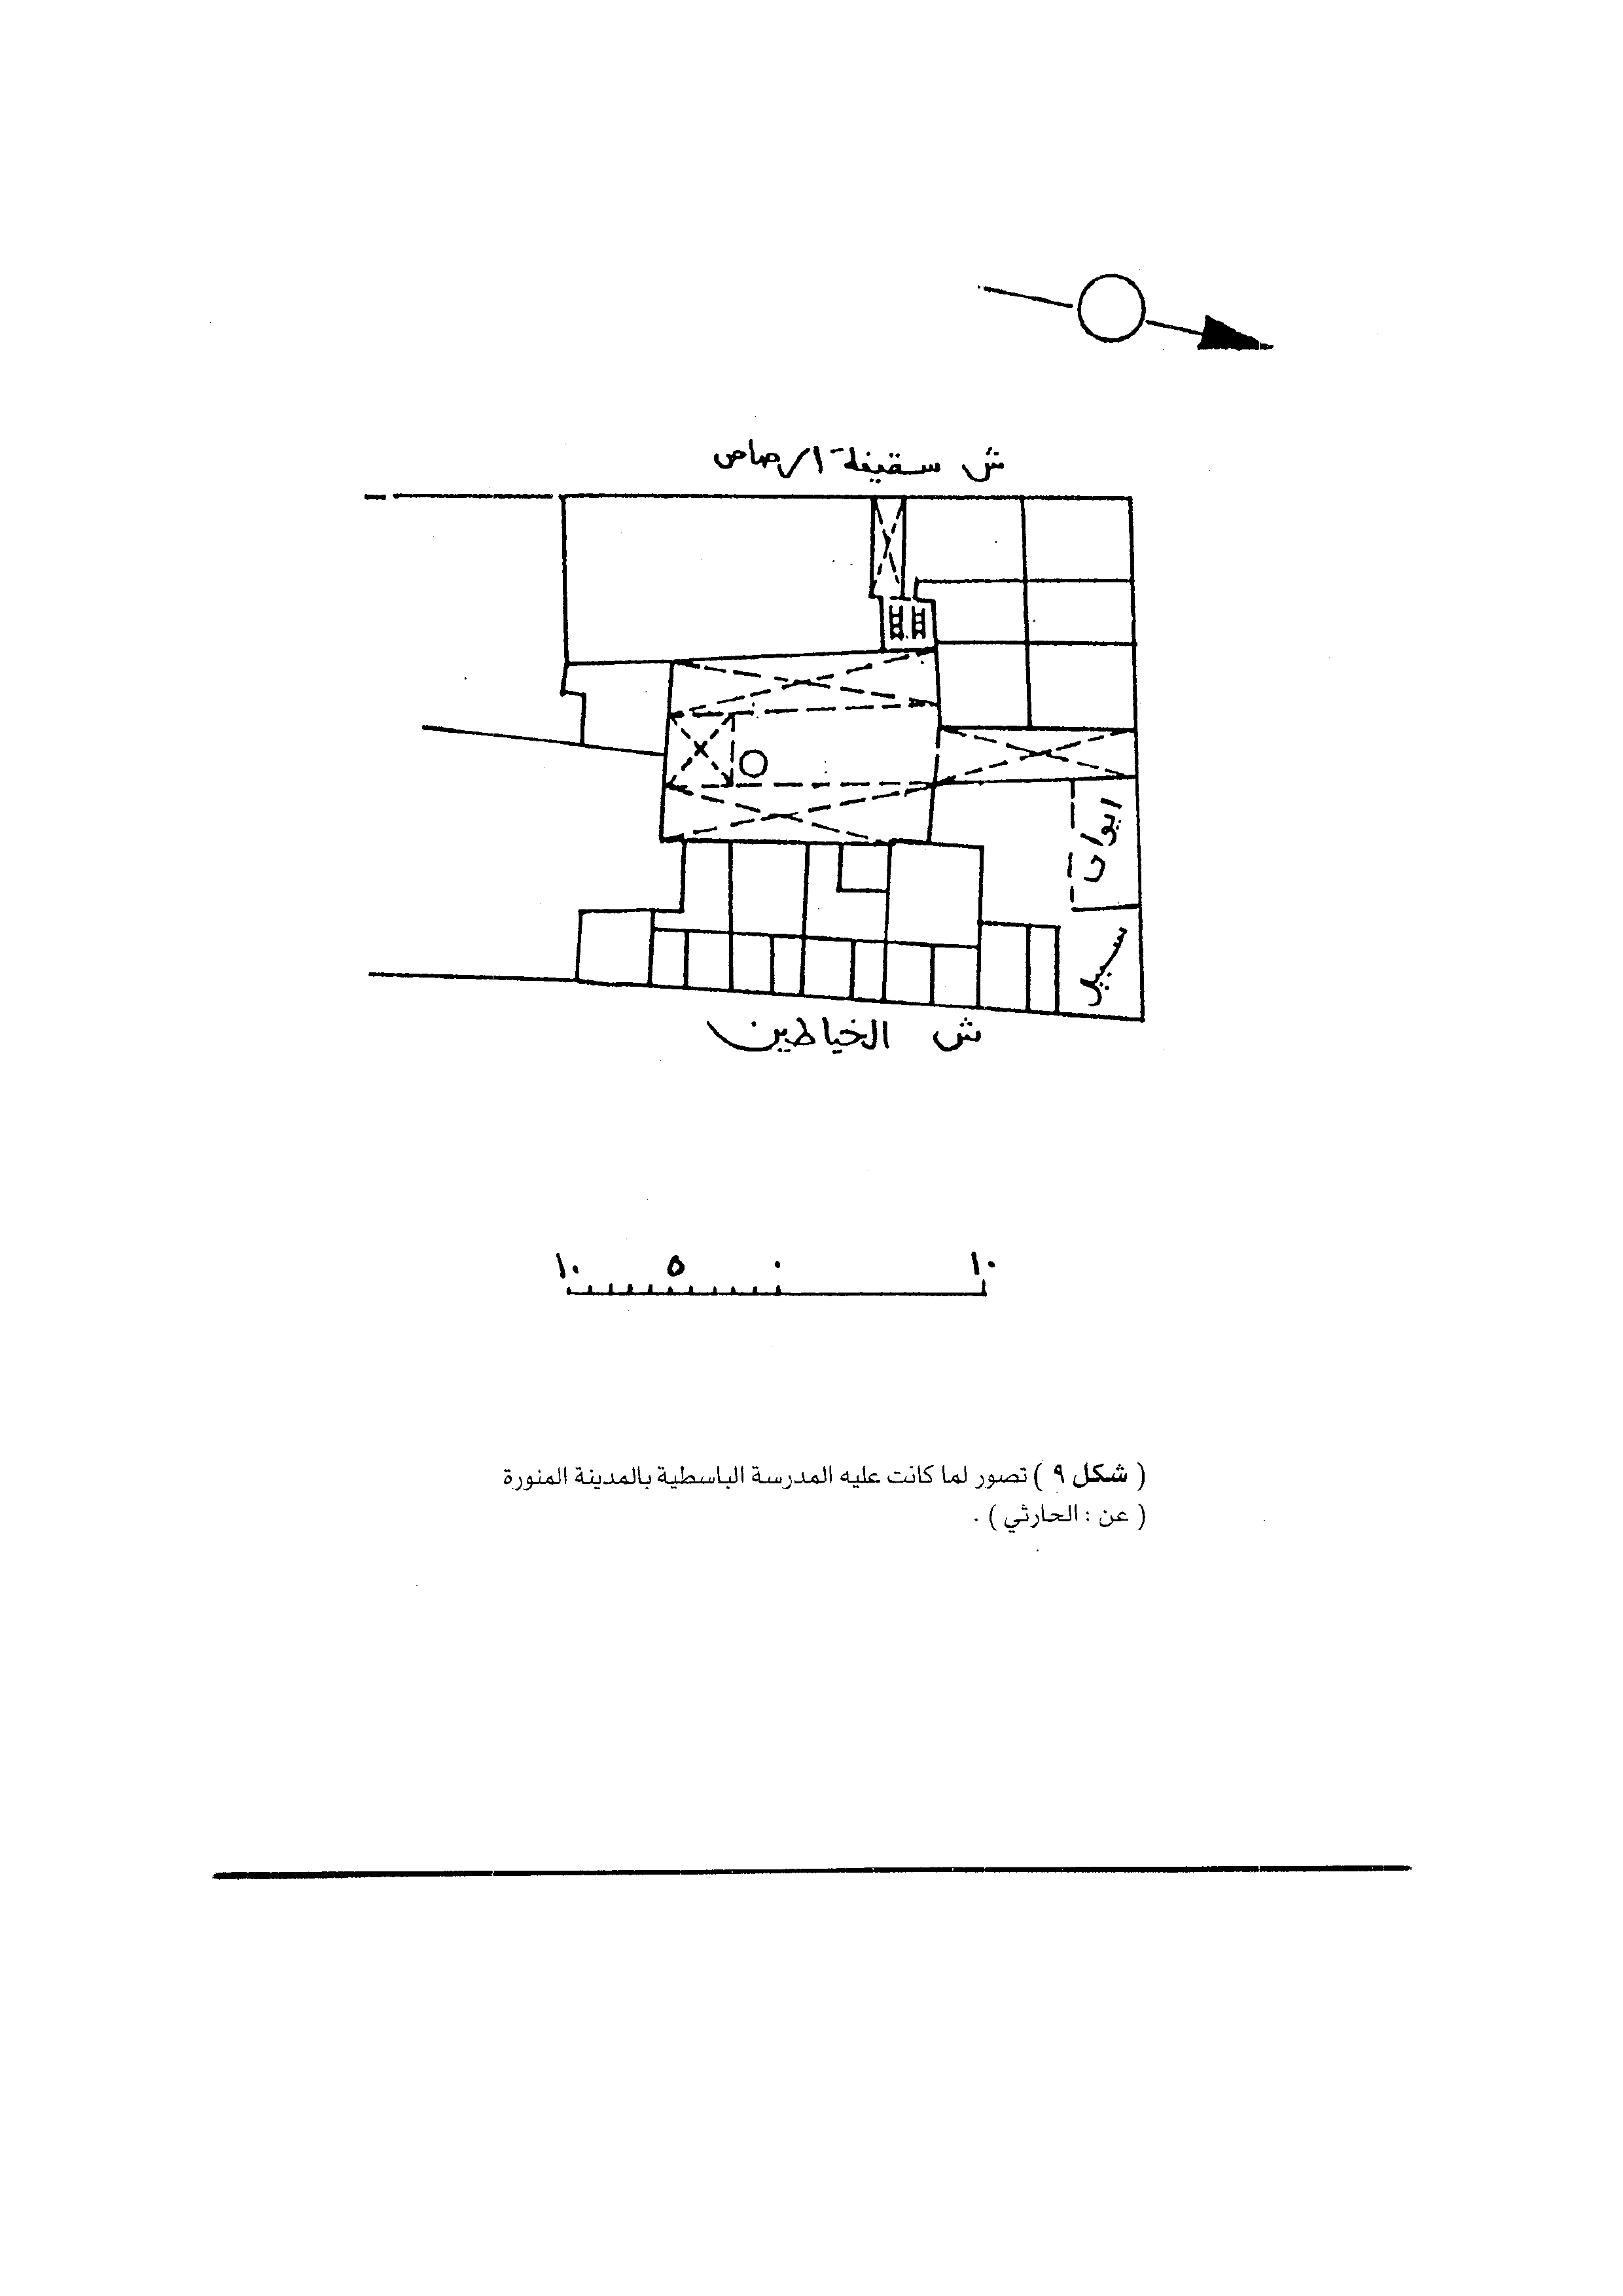 ش سقيفة الرصاص
ايوان
سبيل
ش الخياطين
١٠ ٥ ٠ ١٠
( شكل ٩ ) تصور لما كانت عليه المدرسة الباسطية بالمدينة المنورة
( عن : الحارثي ) .